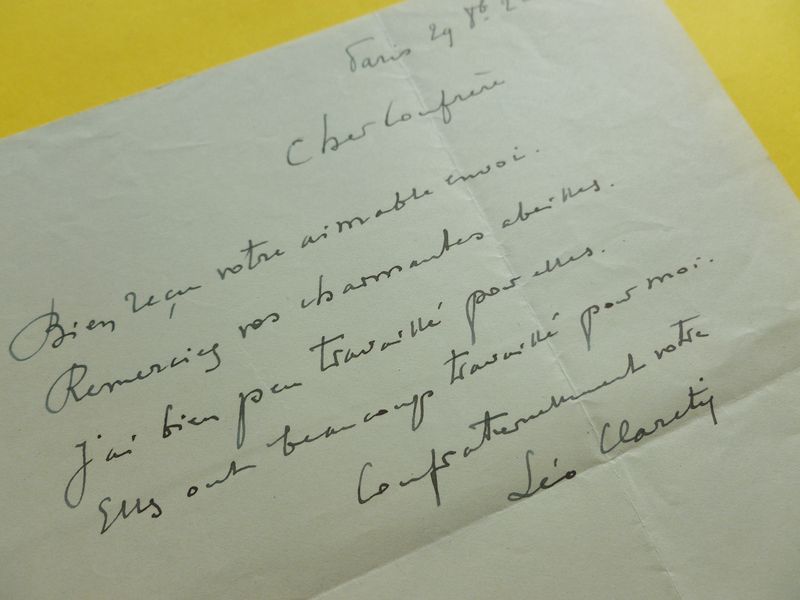 Paris 29 8b. 2
Cher Confrère
Bien reçu votre aimable envoi.
Remerciez vos charmantes abeilles.
J'ai bien peu travaillé pour elles.
Elles ont beaucoup travaillé pour moi.
Confraternellement votre
Léo Claretie